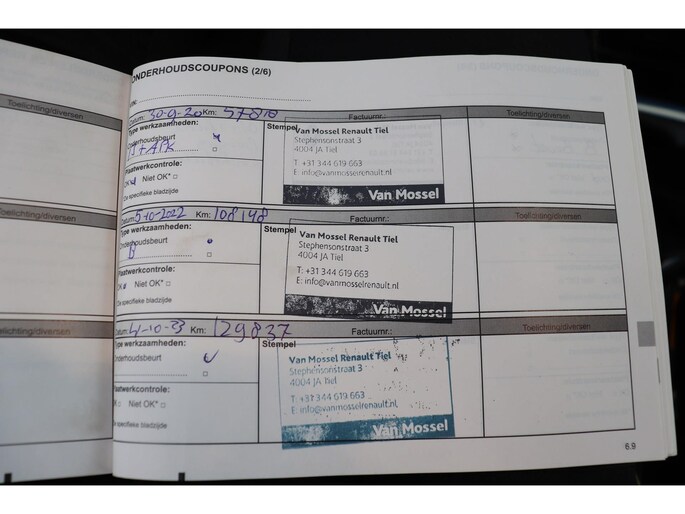 ONDERHOUDSCOUPONS (2/6)
Toelichting/diversen
Datum: 30-9-20 Km: 57810
Factuurnr.:
Toelichting/diversen
Type werkzaamheden:
Stempel
Onderhoudsbeurt
+ APK
Plaatwerkcontrole:
OK Niet OK*
Zie specifieke bladzijde
Van Mossel Renault Tiel
Stephensonstraat 3
4004 JA Tiel
T: +31 344 619 663
E: info@vanmosselrenault.nl
Van Mossel
Toelichting/diversen
Datum: 5-10-2022 Km: 108148
Factuurnr.:
Toelichting/diversen
Type werkzaamheden:
Stempel
Onderhoudsbeurt
B
Plaatwerkcontrole:
OK Niet OK*
Zie specifieke bladzijde
Van Mossel Renault Tiel
Stephensonstraat 3
4004 JA Tiel
T: +31 344 619 663
E: info@vanmosselrenault.nl
Van Mossel
Toelichting/diversen
Datum: 4-10-23 Km: 129837
Factuurnr.:
Toelichting/diversen
Type werkzaamheden:
Stempel
Onderhoudsbeurt
Plaatwerkcontrole:
OK Niet OK*
Zie specifieke bladzijde
Van Mossel Renault Tiel
Stephensonstraat 3
4004 JA Tiel
T: +31 344 619 663
E: info@vanmosselrenault.nl
Van Mossel
6.9